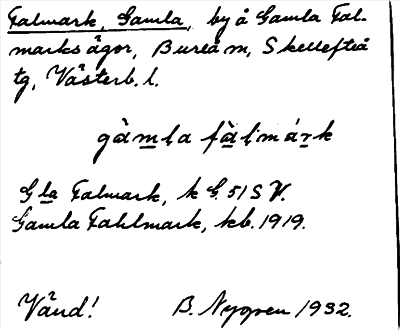 Falmark, Gamla, by å Gamla Fal-
marks ägor, Bureå m, Skellefteå
tg, Västerb. l.
gàmla fàlmárk
Gla Falmark, k G. 51 S V.
Gamla Fahlmark, kb. 1919.
Vänd! B. Nygren 1932.